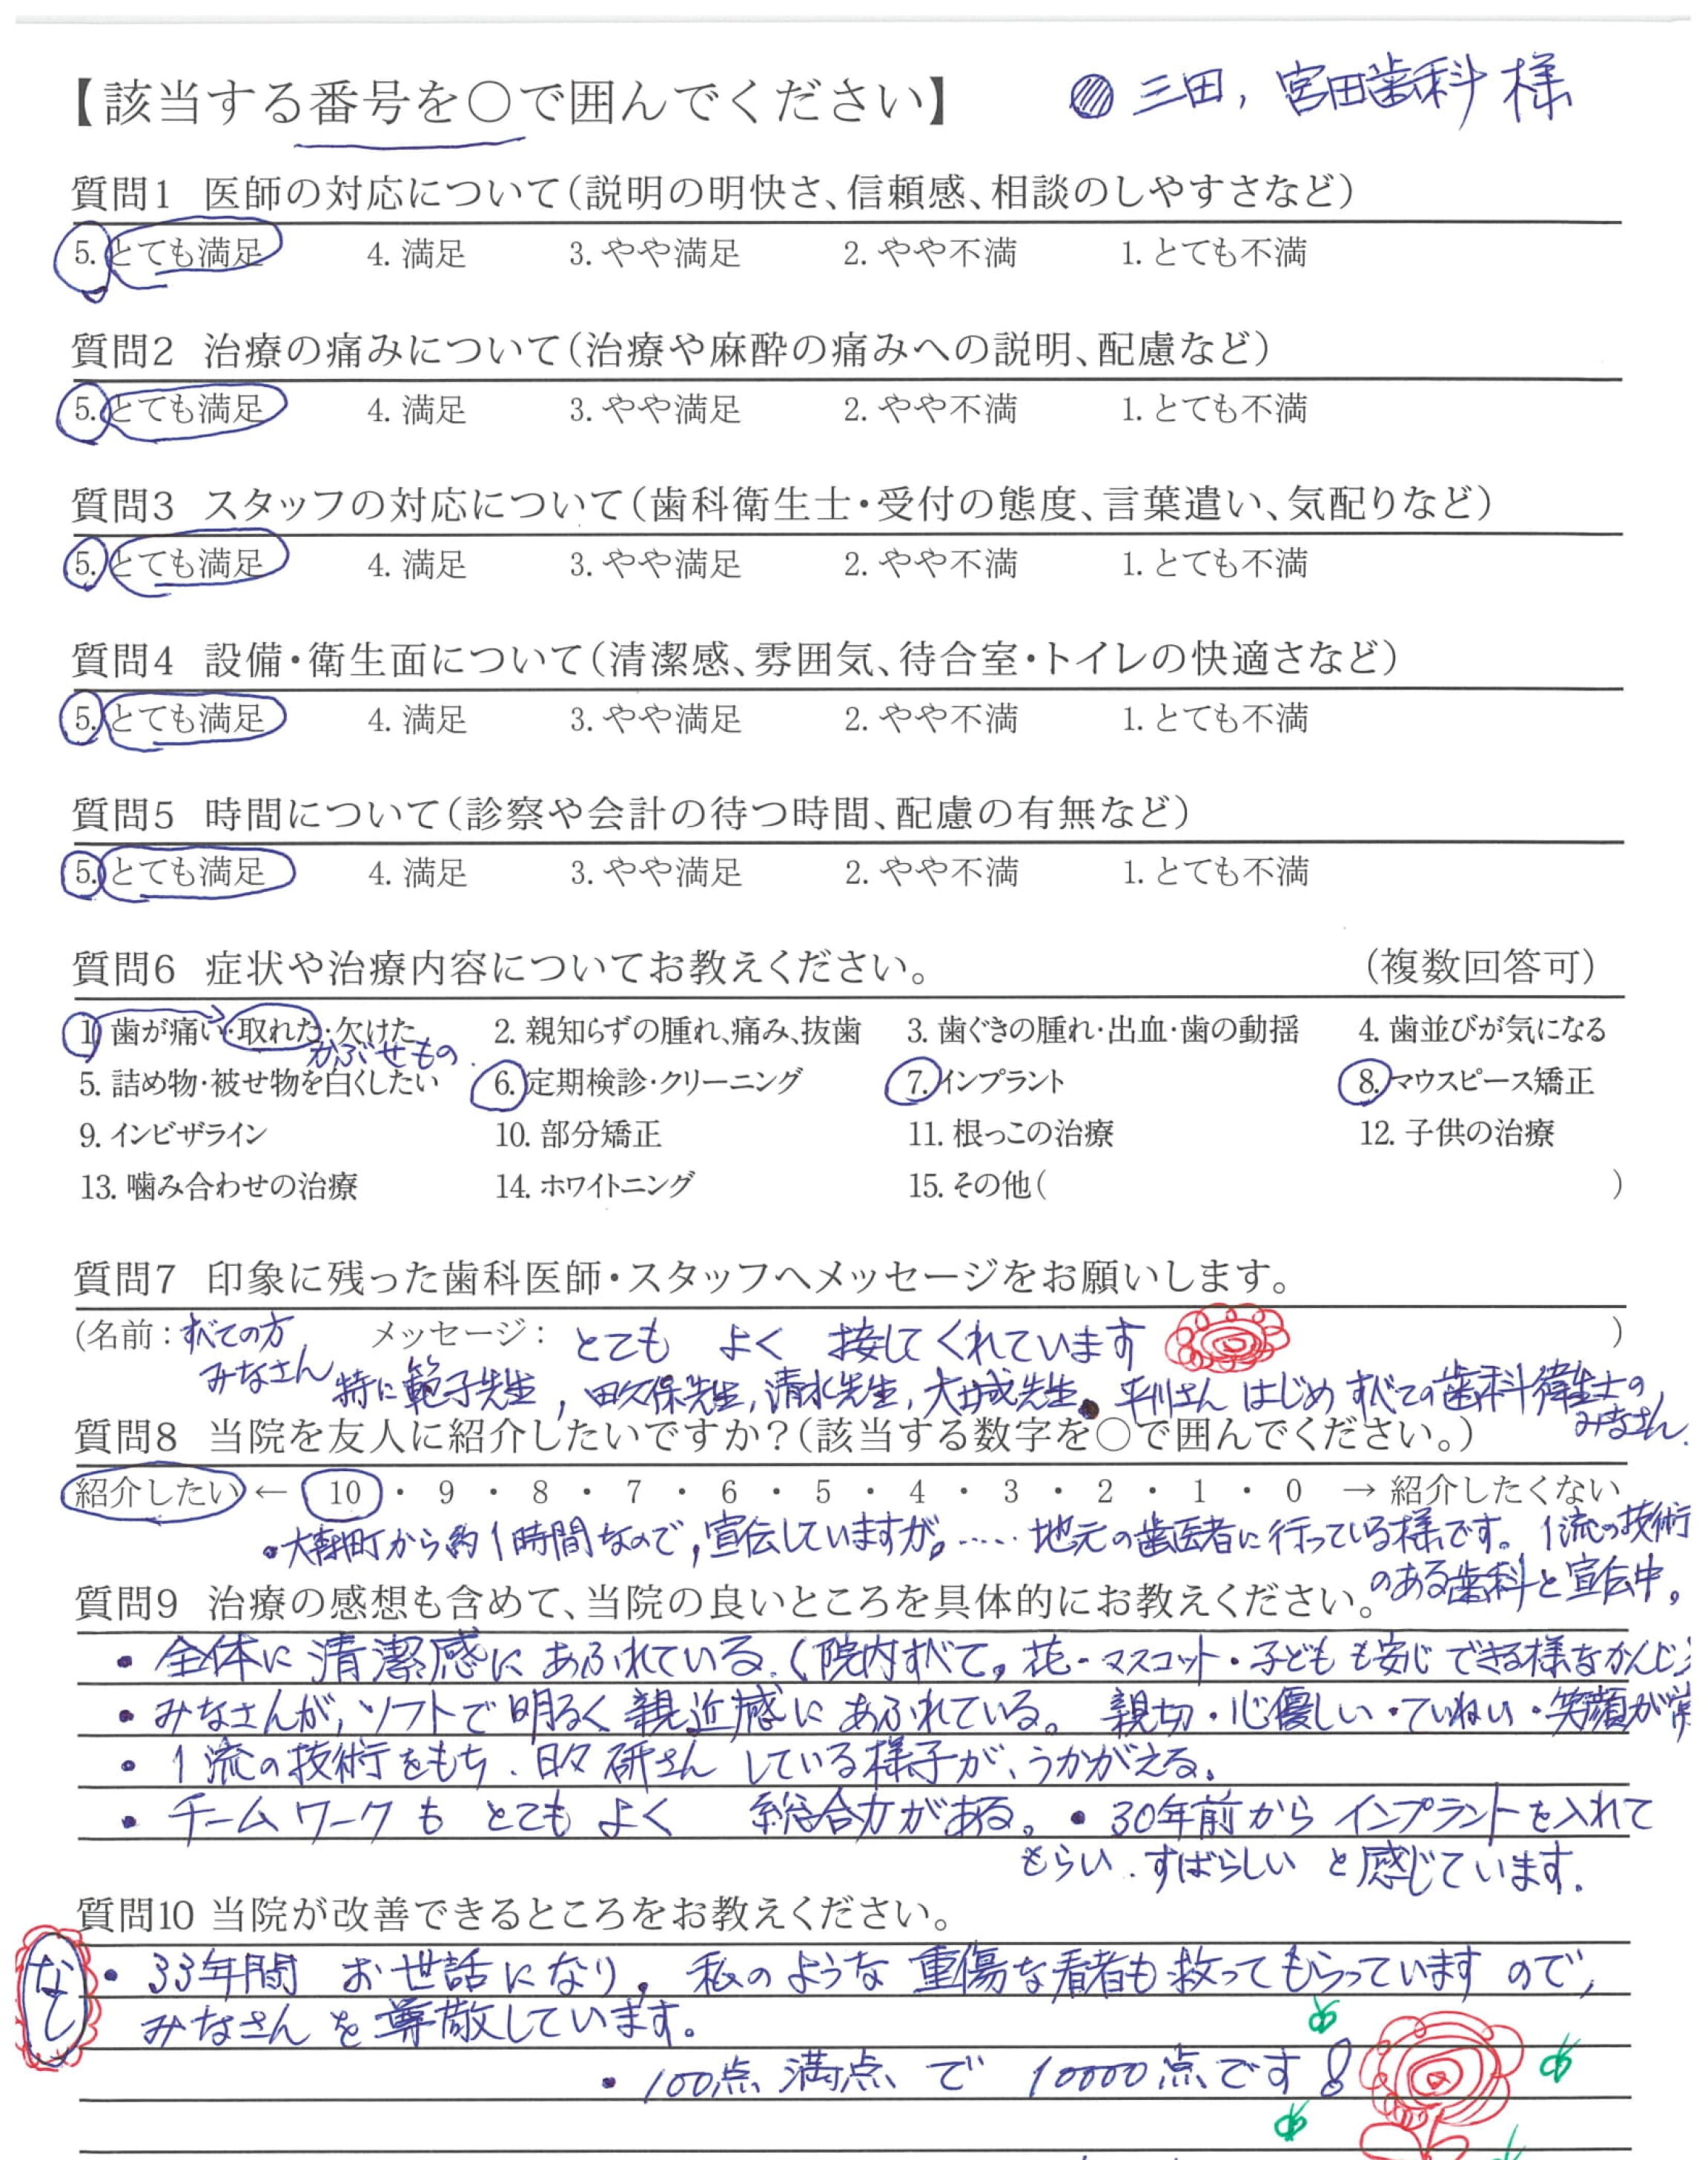 【該当する番号を○で囲んでください】 三田, 宮田歯科様
質問1 医師の対応について(説明の明快さ、信頼感、相談のしやすさなど)
5. とても満足 4. 満足 3. やや満足 2. やや不満 1. とても不満
質問2 治療の痛みについて(治療や麻酔の痛みへの説明、配慮など)
5. とても満足 4. 満足 3. やや満足 2. やや不満 1. とても不満
質問3 スタッフの対応について(歯科衛生士・受付の態度、言葉遣い、気配りなど)
5. とても満足 4. 満足 3. やや満足 2. やや不満 1. とても不満
質問4 設備・衛生面について(清潔感、雰囲気、待合室・トイレの快適さなど)
5. とても満足 4. 満足 3. やや満足 2. やや不満 1. とても不満
質問5 時間について(診察や会計の待つ時間、配慮の有無など)
5. とても満足 4. 満足 3. やや満足 2. やや不満 1. とても不満
質問6 症状や治療内容についてお教えください。 (複数回答可)
1. 歯が痛い・取れた・欠けた 2. 親知らずの腫れ、痛み、抜歯 3. 歯ぐきの腫れ・出血・歯の動揺 4. 歯並びが気になる
かぶせもの.
5. 詰め物・被せ物を白くしたい 6. 定期検診・クリーニング 7. インプラント 8. マウスピース矯正
9. インビザライン 10. 部分矯正 11. 根っこの治療 12. 子供の治療
13. 噛み合わせの治療 14. ホワイトニング 15. その他( )
質問7 印象に残った歯科医師・スタッフへメッセージをお願いします。
(名前:すべての方 メッセージ: とても よく 接してくれています )
みなさん 特に範子先生, 田久保先生, 清水先生, 大城先生. 平川さん はじめ すべての歯科衛生士の
みなさん.
質問8 当院を友人に紹介したいですか?(該当する数字を○で囲んでください。)
紹介したい ← 10・9・8・7・6・5・4・3・2・1・0 → 紹介したくない
・ から約1時間なので, 宣伝していますが。…… 地元の歯医者に行っている様です。 1流の技術
のある歯科と宣伝中。
質問9 治療の感想も含めて、当院の良いところを具体的にお教えください。
・全体に清潔感にあふれている.(院内すべて。花・マスコット・子どもも安心できる様なかんじ
・みなさんが, ソフトで明るく親近感にあふれている。 親切・心優しい・ていねい・笑顔が
・1流の技術をもち. 日々研さんしている様子が、うかがえる。
・チームワークも とても よく 総合力がある。・30年前から インプラントを入れて
もらい. すばらしい と感じています.
質問10 当院が改善できるところをお教えください。
なし ・33年間 お世話になり, 私のような 重傷な患者も救ってもらっていますので,
みなさんを尊敬しています。
・100点満点で 10000点です!